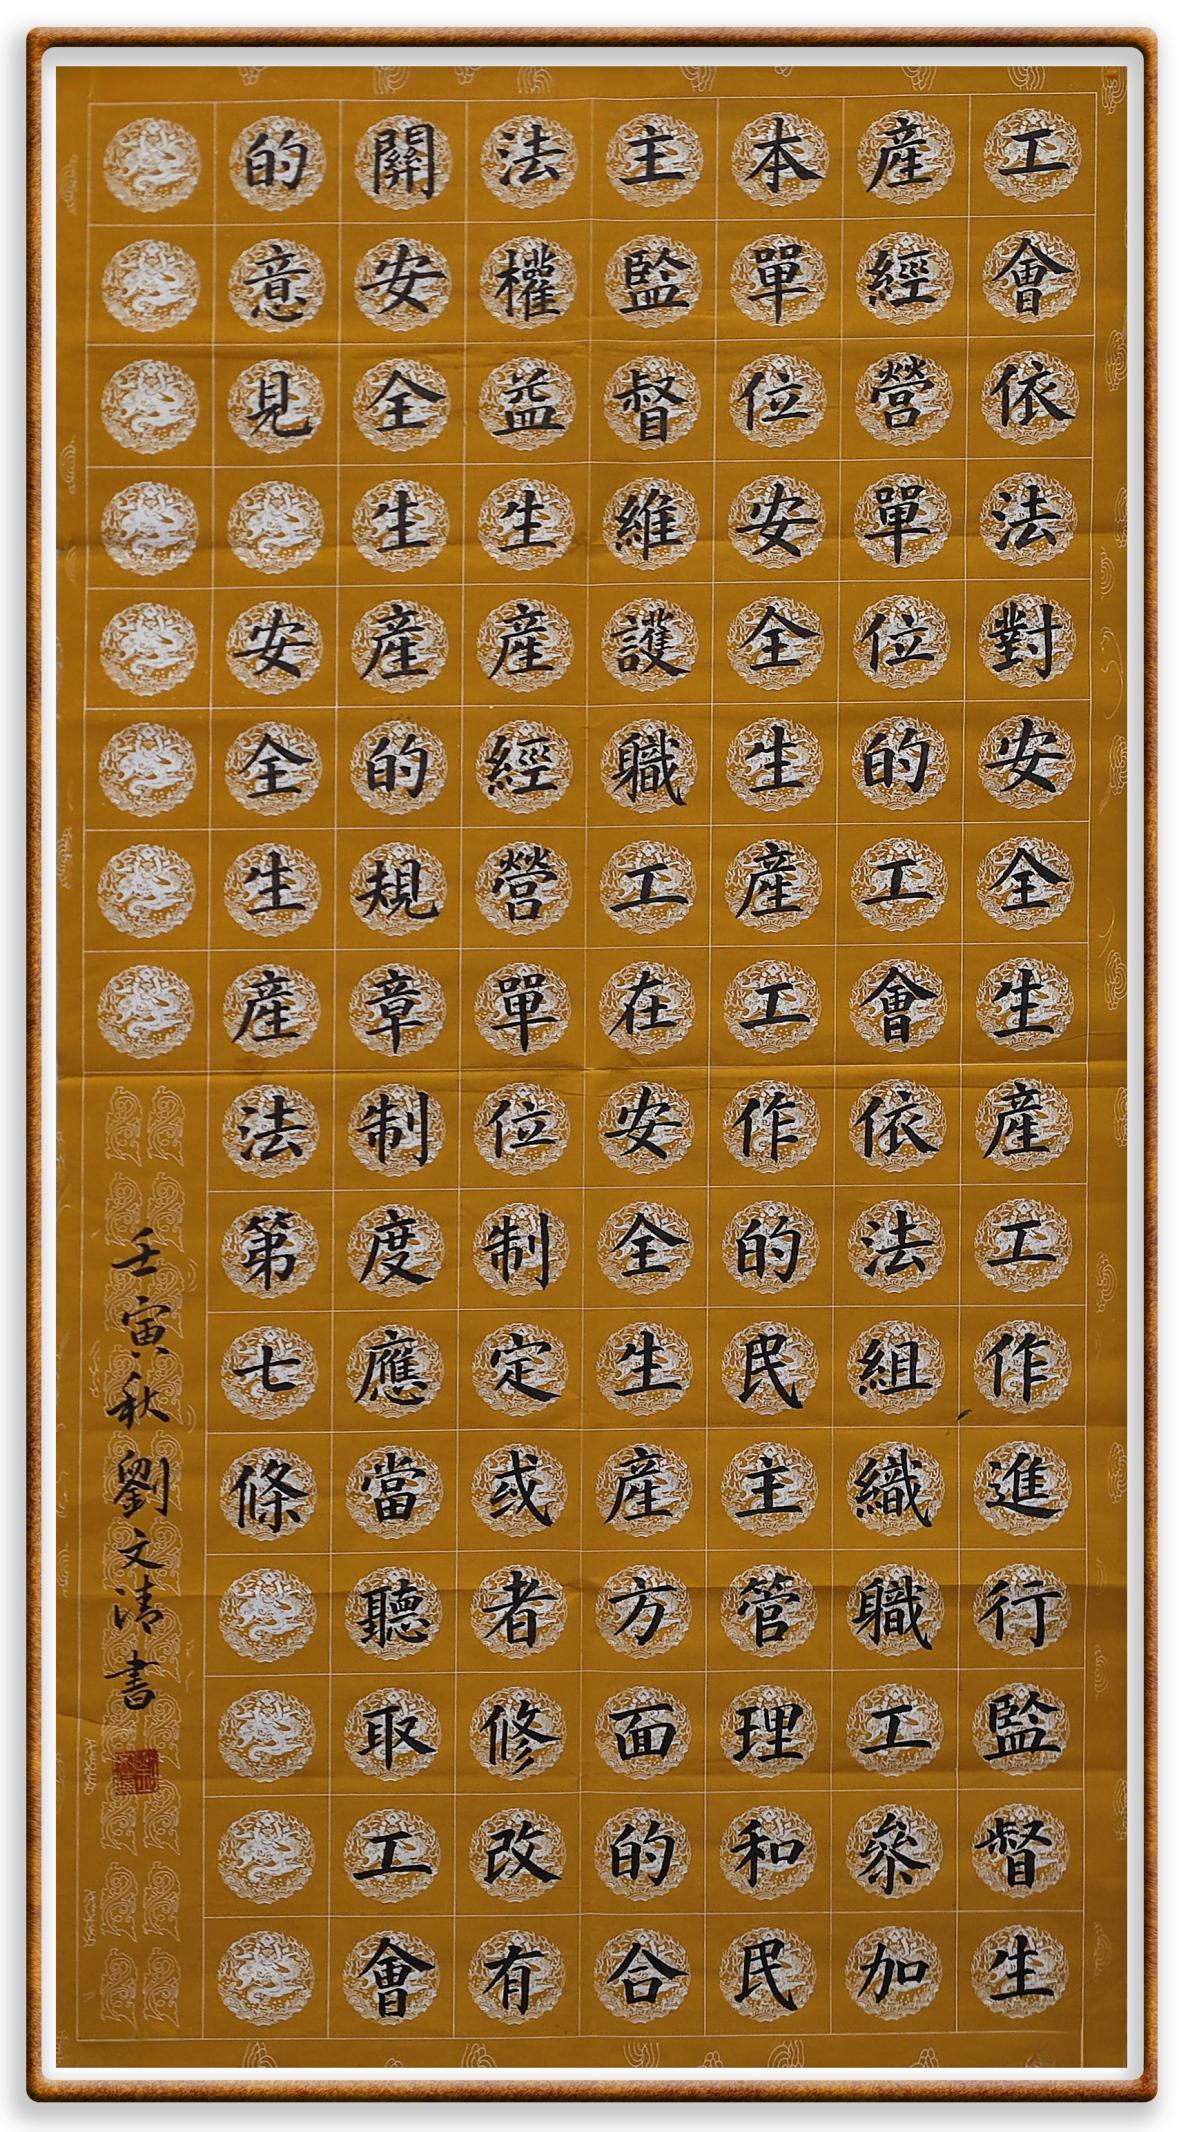 工會依法對安全生產工作進行監督生
產經營單位的工會依法組織職工參加
本單位安全生產工作的民主管理和民
主監督維護職工在安全生產方面的合
法權益生產經營單位制定或者修改有
關安全生產的規章制度應當聽取工會
的意見 安全生產法第七條
壬寅秋劉文清書